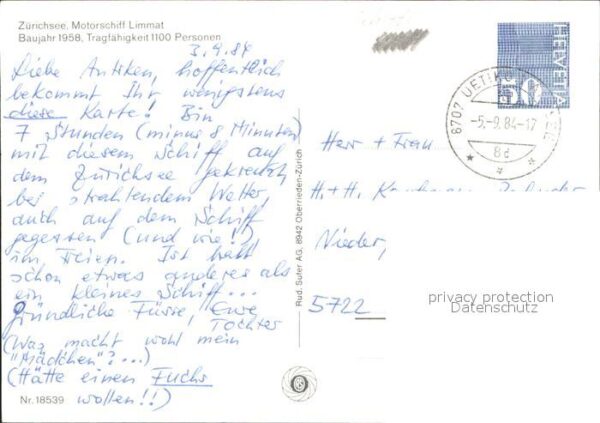 Zürichsee, Motorschiff Limmat
Baujahr 1958, Tragfähigkeit 1100 Personen
3.9.84
Liebe Antiken, hoffentlich
bekommt Ihr wenigstens
diese Karte! Bin
7 Stunden (minus 8 Minuten)
mit diesem Schiff auf
dem Zürichsee gekreuzt
bei strahlendem Wetter,
auch auf dem Schiff
gegessen (und wie!)
im Freien. Ist halt
schon etwas anderes als
ein kleines Schiff...
gründliche Füsse, Ewe
Tochter
(Was macht wohl mein
"Mädchen"?...)
(Hätte einen Fuchs
wollen!!)
Nr. 18539
Rud. Suter AG, 8942 Oberrieden-Zürich
HELVETIA
50
8707 UETIKON
-5.-9.84-17
8d
Herr + Frau
H. + H.
Nieder,
5722
privacy protection
Datenschutz